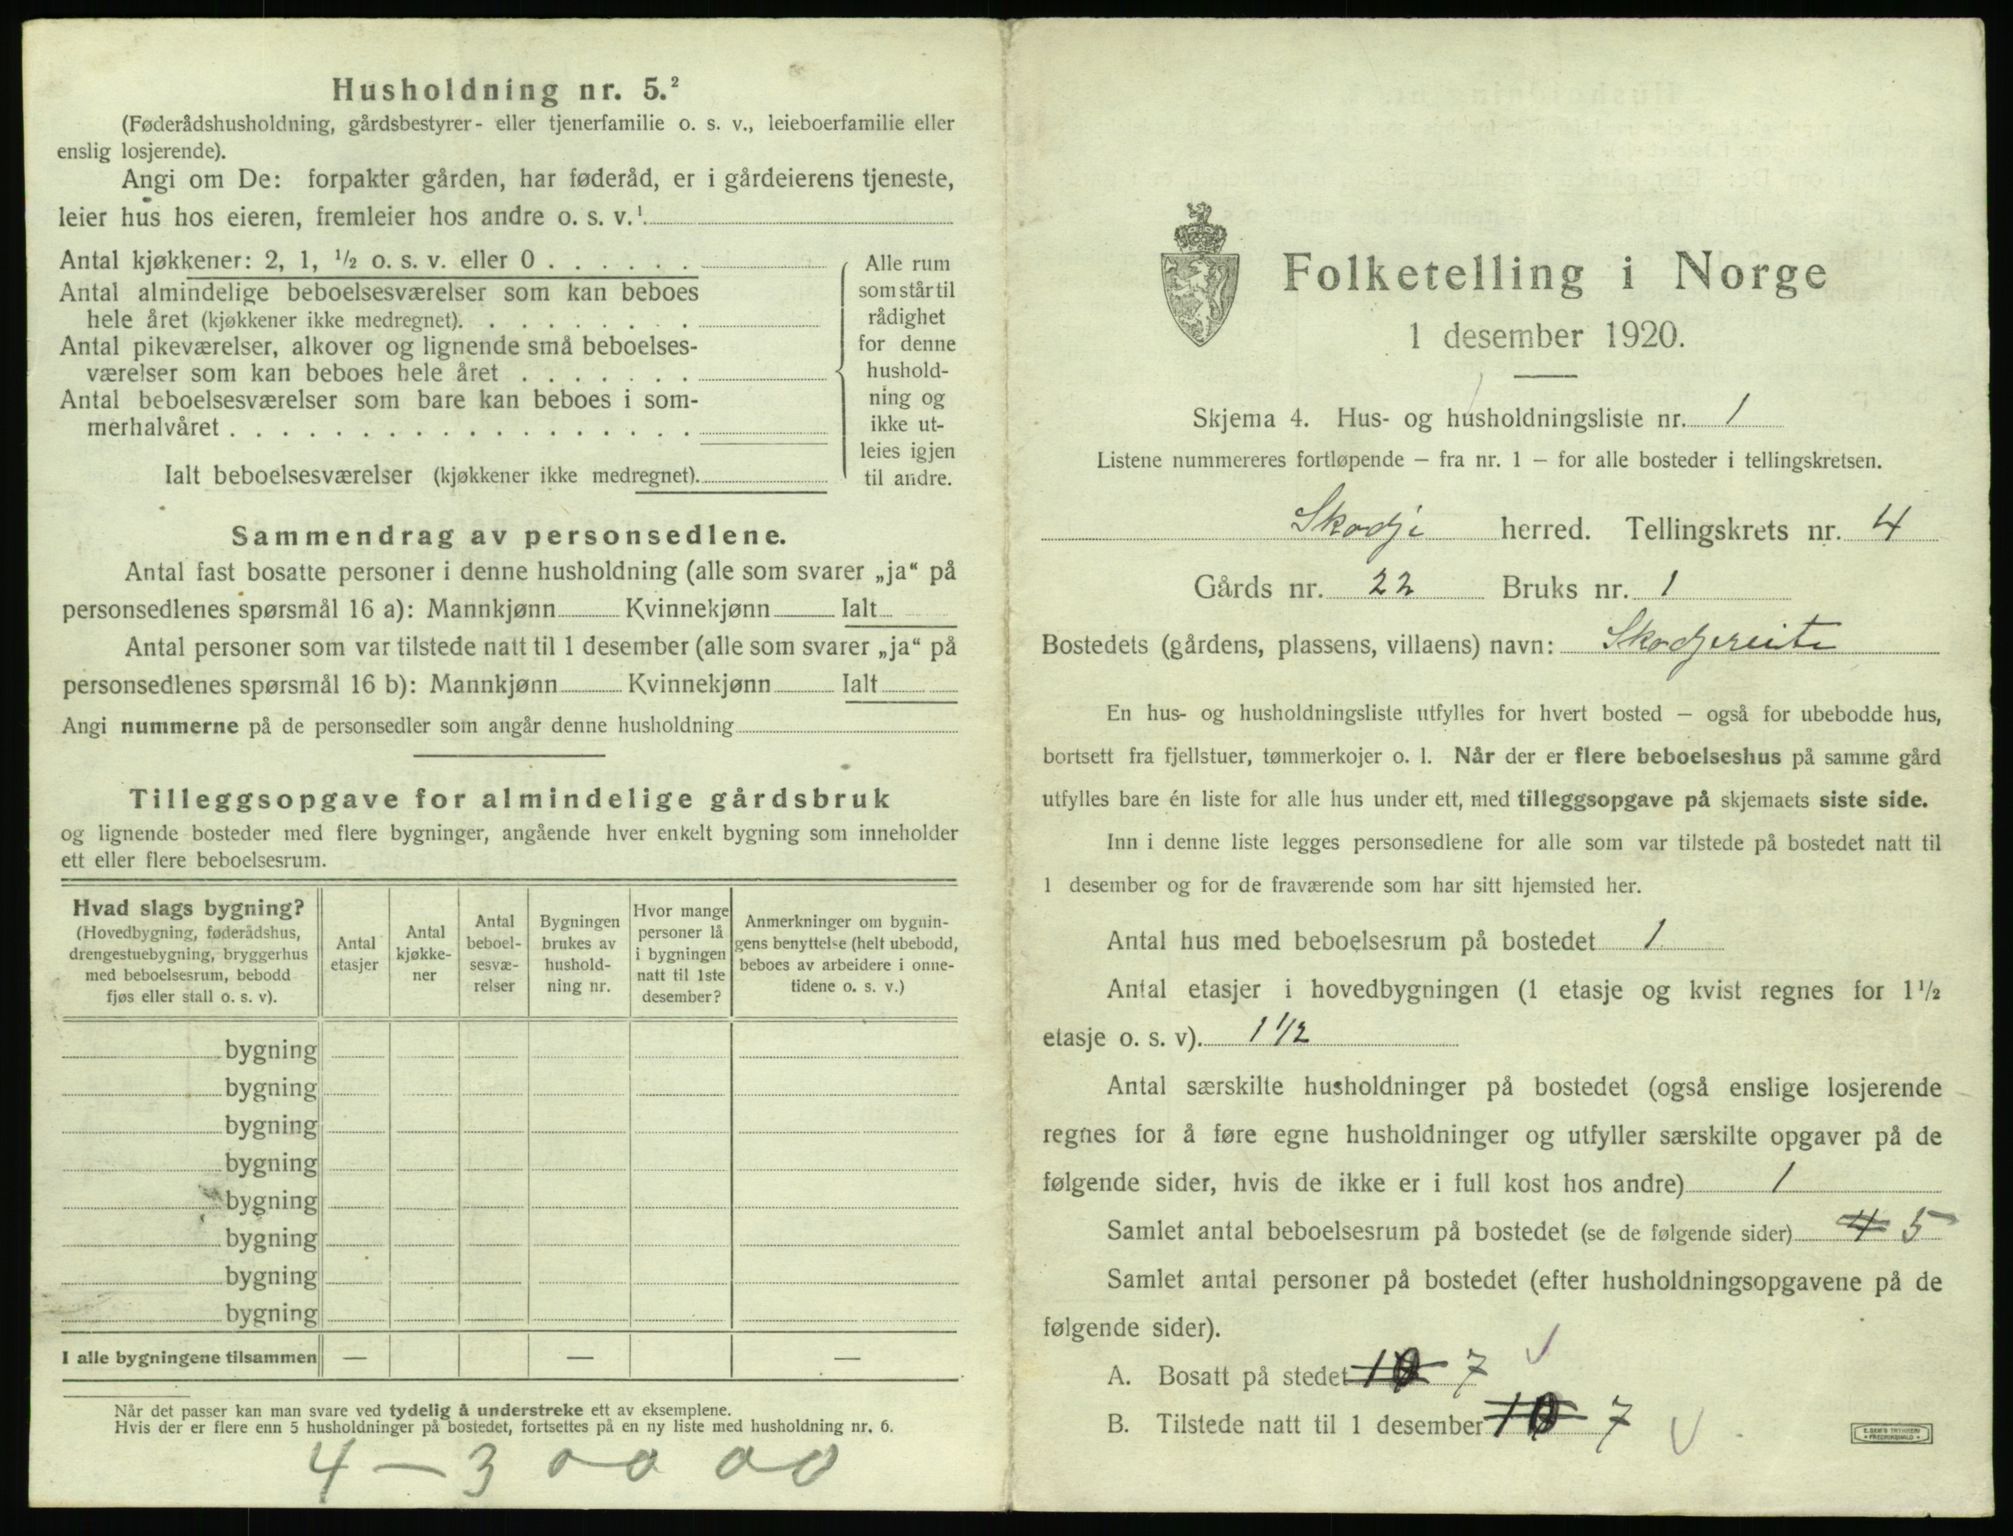 Husholdning nr. 5.²
(Føderådshusholdning, gårdsbestyrer- eller tjenerfamilie o. s. v., leieboerfamilie eller
enslig losjerende).
Angi om De: forpakter gården, har føderåd, er i gårdeierens tjeneste,
leier hus hos eieren, fremleier hos andre o. s. v.¹
Antal kjøkkener: 2, 1, ½ o. s. v. eller 0
Antal almindelige beboelsesværelser som kan beboes
hele året (kjøkkener ikke medregnet).
Antal pikeværelser, alkover og lignende små beboelses-
værelser som kan beboes hele året
Antal beboelsesværelser som bare kan beboes i som-
merhalvåret
Ialt beboelsesværelser (kjøkkener ikke medregnet).
Alle rum
som står til
rådighet
for denne
hushold-
ning og
ikke ut-
leies igjen
til andre.
Sammendrag av personsedlene.
Antal fast bosatte personer i denne husholdning (alle som svarer „ja“ på
personsedlenes spørsmål 16 a): Mannkjønn Kvinnekjønn Ialt
Antal personer som var tilstede natt til 1 desember (alle som svarer „ja“ på
personsedlenes spørsmål 16 b): Mannkjønn Kvinnekjønn Ialt
Angi nummerne på de personsedler som angår denne husholdning
Tilleggsopgave for almindelige gårdsbruk
og lignende bosteder med flere bygninger, angående hver enkelt bygning som inneholder
ett eller flere beboelsesrum.
Hvad slags bygning?
(Hovedbygning, føderådshus,
drengestuebygning, bryggerhus
med beboelsesrum, bebodd
fjøs eller stall o. s. v).
Antal
etasjer
Antal
kjøkke-
ner
Antal
beboel-
sesvæ-
relser
Bygningen
brukes av
hushold-
ning nr.
Hvor mange
personer lå
i bygningen
natt til 1ste
desember?
Anmerkninger om bygnin-
gens benyttelse (helt ubebodd,
beboes av arbeidere i onne-
tidene o. s. v.)
bygning
bygning
bygning
bygning
bygning
bygning
bygning
bygning
I alle bygningene tilsammen — — —
Når det passer kan man svare ved tydelig å understreke ett av eksemplene.
Hvis der er flere enn 5 husholdninger på bostedet, fortsettes på en ny liste med husholdning nr. 6.
4 — 3 00 00
Folketelling i Norge
1 desember 1920.
Skjema 4. Hus- og husholdningsliste nr. 1
Listene nummereres fortløpende – fra nr. 1 – for alle bosteder i tellingskretsen.
Skodje herred. Tellingskrets nr. 4
Gårds nr. 22 Bruks nr. 1
Bostedets (gårdens, plassens, villaens) navn: Skodjereite
En hus- og husholdningsliste utfylles for hvert bosted – også for ubebodde hus,
bortsett fra fjellstuer, tømmerkojer o. l. Når der er flere beboelseshus på samme gård
utfylles bare én liste for alle hus under ett, med tilleggsopgave på skjemaets siste side.
Inn i denne liste legges personsedlene for alle som var tilstede på bostedet natt til
1 desember og for de fraværende som har sitt hjemsted her.
Antal hus med beboelsesrum på bostedet 1
Antal etasjer i hovedbygningen (1 etasje og kvist regnes for 1½
etasje o. s. v). 1 1/2
Antal særskilte husholdninger på bostedet (også enslige losjerende
regnes for å føre egne husholdninger og utfyller særskilte opgaver på de
følgende sider, hvis de ikke er i full kost hos andre) 1
Samlet antal beboelsesrum på bostedet (se de følgende sider) 4 5
Samlet antal personer på bostedet (efter husholdningsopgavene på de
følgende sider).
A. Bosatt på stedet 10 7
B. Tilstede natt til 1 desember 10 7